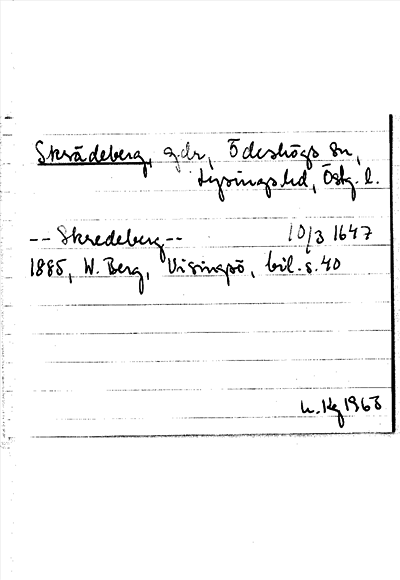 Skrädeberg, gdr, Ödeshögs sn,
Lysings hd, Östg. l.
-- Skredeberg -- 10/3 1647
1885, W. Berg, Visingsö, bil. s. 40
1963